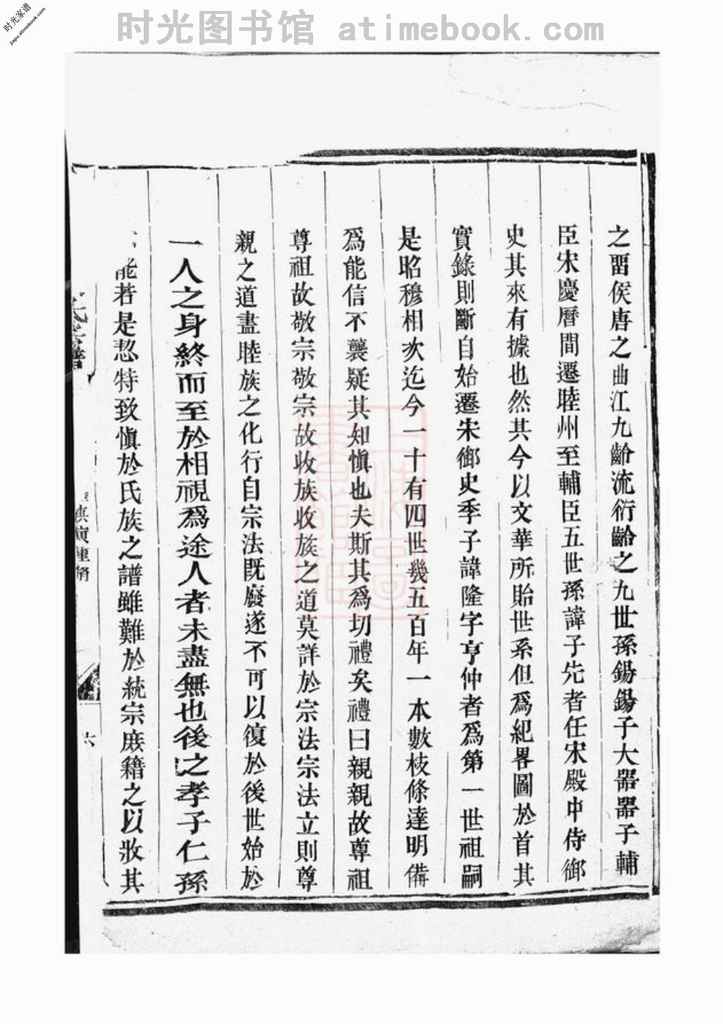 时光图书馆 atimebook.com
时光家谱
jiapu.atimebook.com
之畱侯唐之曲江九齡流衍齡之九世孫鍚鍚子大器器子輔
臣宋慶曆間遷睦州至輔臣五世孫諱子先者任宋殿中侍御
史其來有據也然其今以文華所貽世系但爲紀畧圖於首其
實錄則斷自始遷宋御史季子諱隆字亨仲者爲第一世祖嗣
是昭穆相次迄今一十有四世幾五百年一本數枝條達明備
爲能信不襲疑其知愼也夫斯其爲切禮矣禮曰親親故尊祖
尊祖故敬宗敬宗故收族收族之道莫詳於宗法宗法立則尊
親之道盡睦族之化行自宗法旣廢遂不可以復於後世始於
一人之身終而至於相視爲途人者未盡無也後之孝子仁孫
能若是惄特致愼於氏族之譜雖難於統宗庻籍之以收其
氏宗譜
寅重脩
六